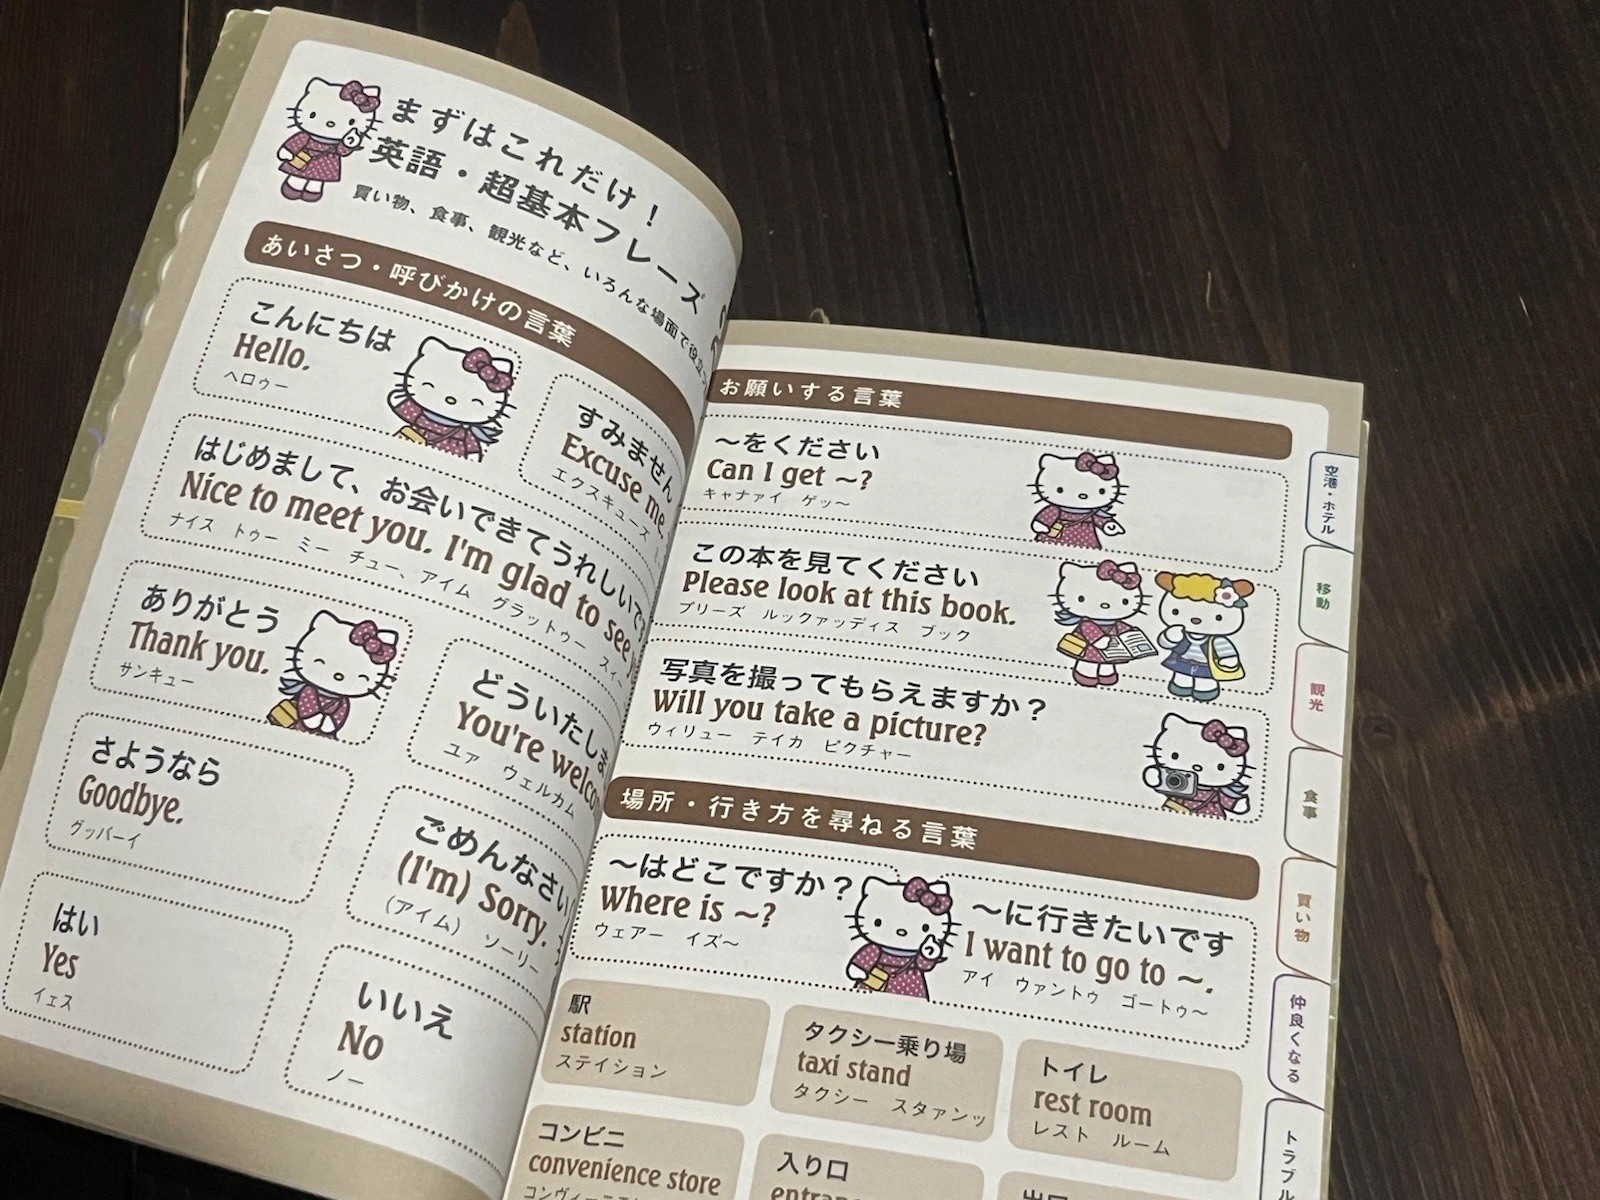 まずはこれだけ!
英語・超基本フレーズ
買い物、食事、観光など、いろんな場面で役立つ
あいさつ・呼びかけの言葉
こんにちは
Hello.
ヘロゥー
すみません
Excuse me
エクスキューズ
はじめまして、お会いできてうれしいです
Nice to meet you. I'm glad to see
ナイス トゥー ミー チュー、アイム グラットゥー スィー
ありがとう
Thank you.
サンキュー
どういたしま
You're welco
ユア ウェルカム
さようなら
Goodbye.
グッバーイ
ごめんなさい
(I'm) Sorry.
(アイム) ソーリー
はい
Yes
イェス
いいえ
No
ノー
お願いする言葉
~をください
Can I get ~?
キャナァイ ゲッ~
この本を見てください
Please look at this book.
プリーズ ルックァッディス ブック
写真を撮ってもらえますか?
Will you take a picture?
ウィリュー テイカ ピクチャー
場所・行き方を尋ねる言葉
~はどこですか?
Where is ~?
ウェアー イズ~
~に行きたいです
I want to go to ~.
アイ ウァントゥ ゴートゥ~
駅
station
ステイション
タクシー乗り場
taxi stand
タクシー スタァンッ
トイレ
rest room
レスト ルーム
コンビニ
convenience store
入り口
空港・ホテル
移動
観光
食事
買い物
仲良くなる
トラブル